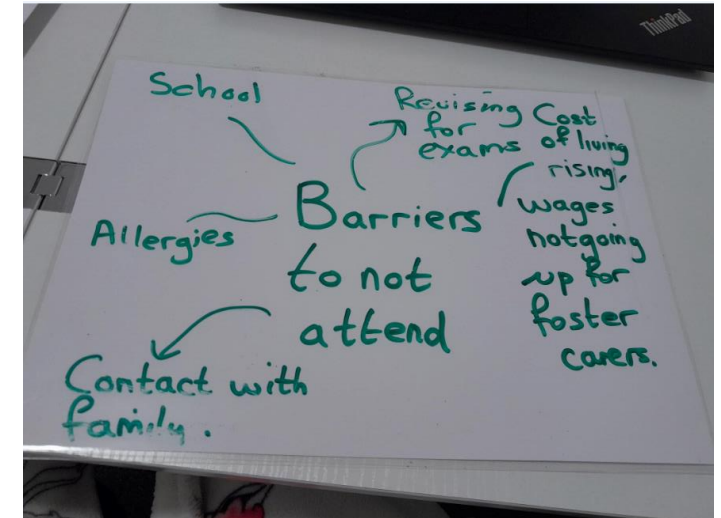 ThinkPad
School
Revising
for
exams
Cost
of living
rising,
wages
not going
up for
foster
carers.
Allergies
Barriers
to not
attend
Contact with
family.